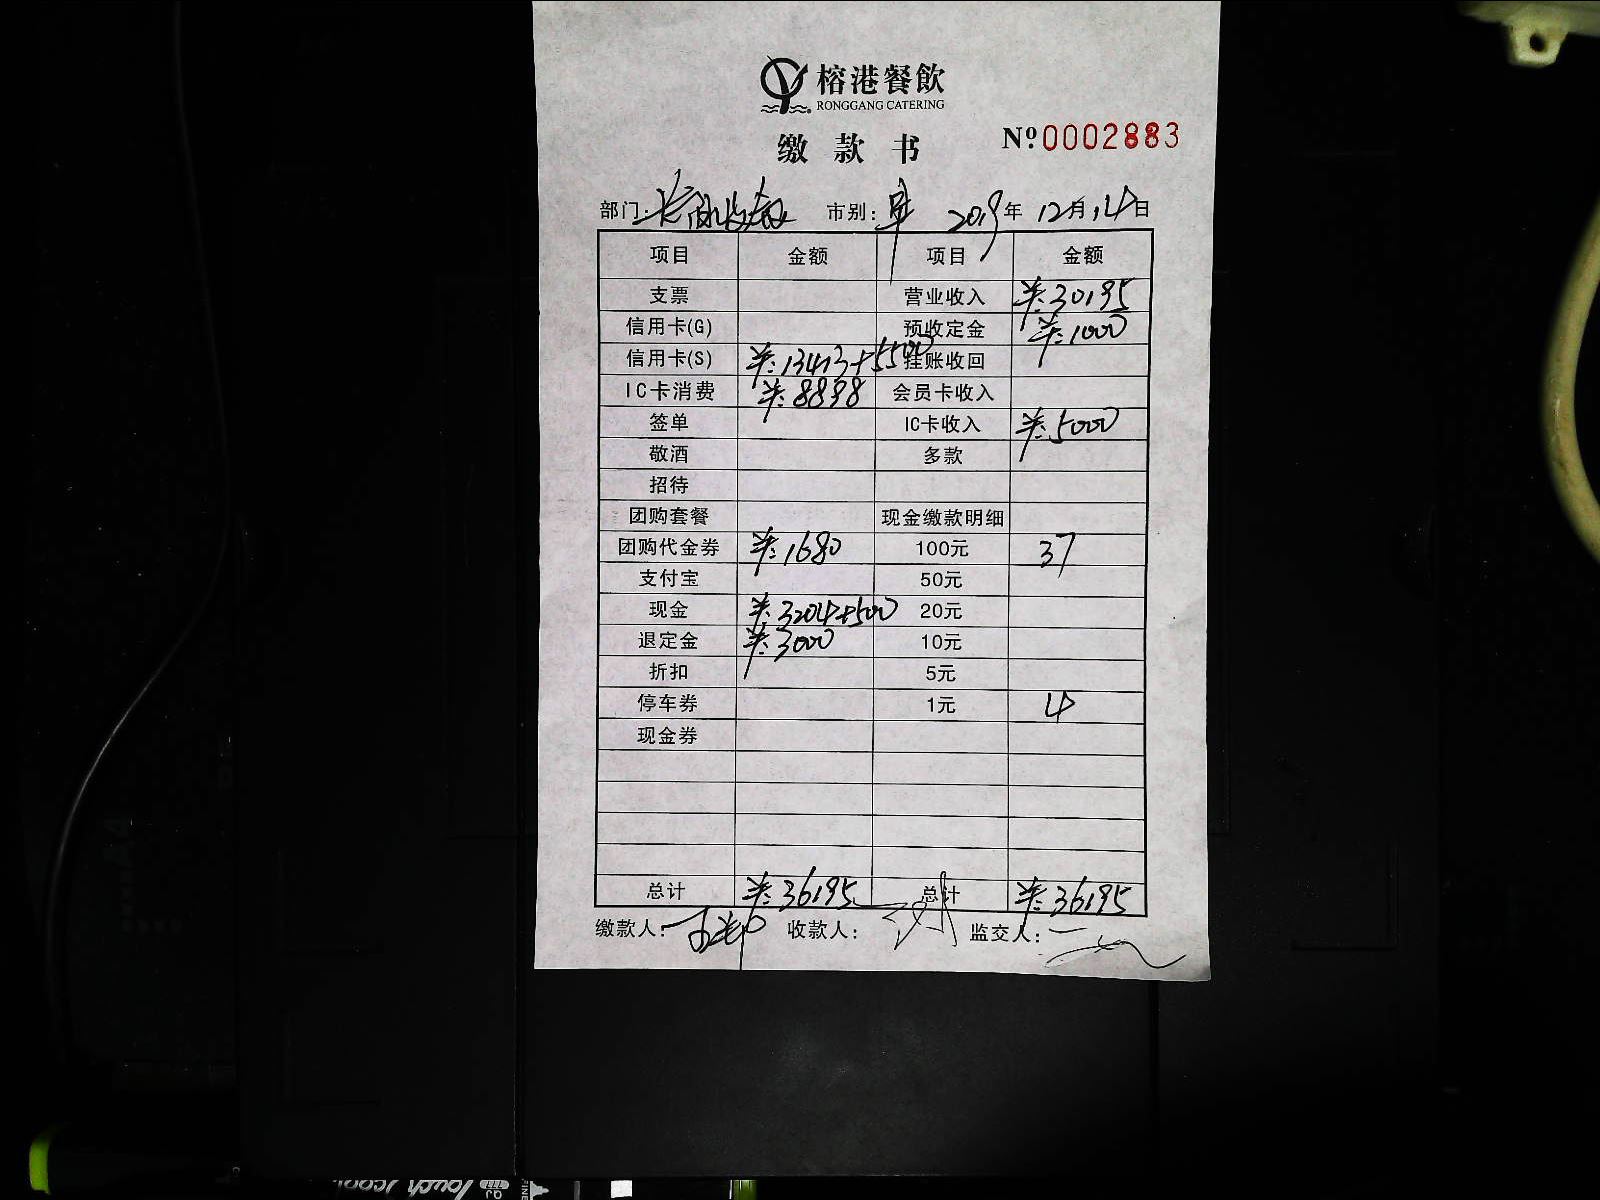 榕港餐飲
RONGGANG CATERING
缴款书 Nº 0002883
部门: 市别: 2019年 12月 14日
项目 金额 项目 金额
支票 营业收入 ¥:30195
信用卡(G) 预收定金 ¥:1000
信用卡(S) ¥:13413+5500 挂账收回
IC卡消费 ¥:8898 会员卡收入
签单 IC卡收入 ¥:5000
敬酒 多款
招待
团购套餐 现金缴款明细
团购代金券 ¥:1680 100元 37
支付宝 50元
现金 ¥:3204+500 20元
退定金 ¥:3000 10元
折扣 5元
停车券 1元 4
现金券
总计 ¥:36195 总计 ¥:36195
缴款人: 收款人: 监交人: